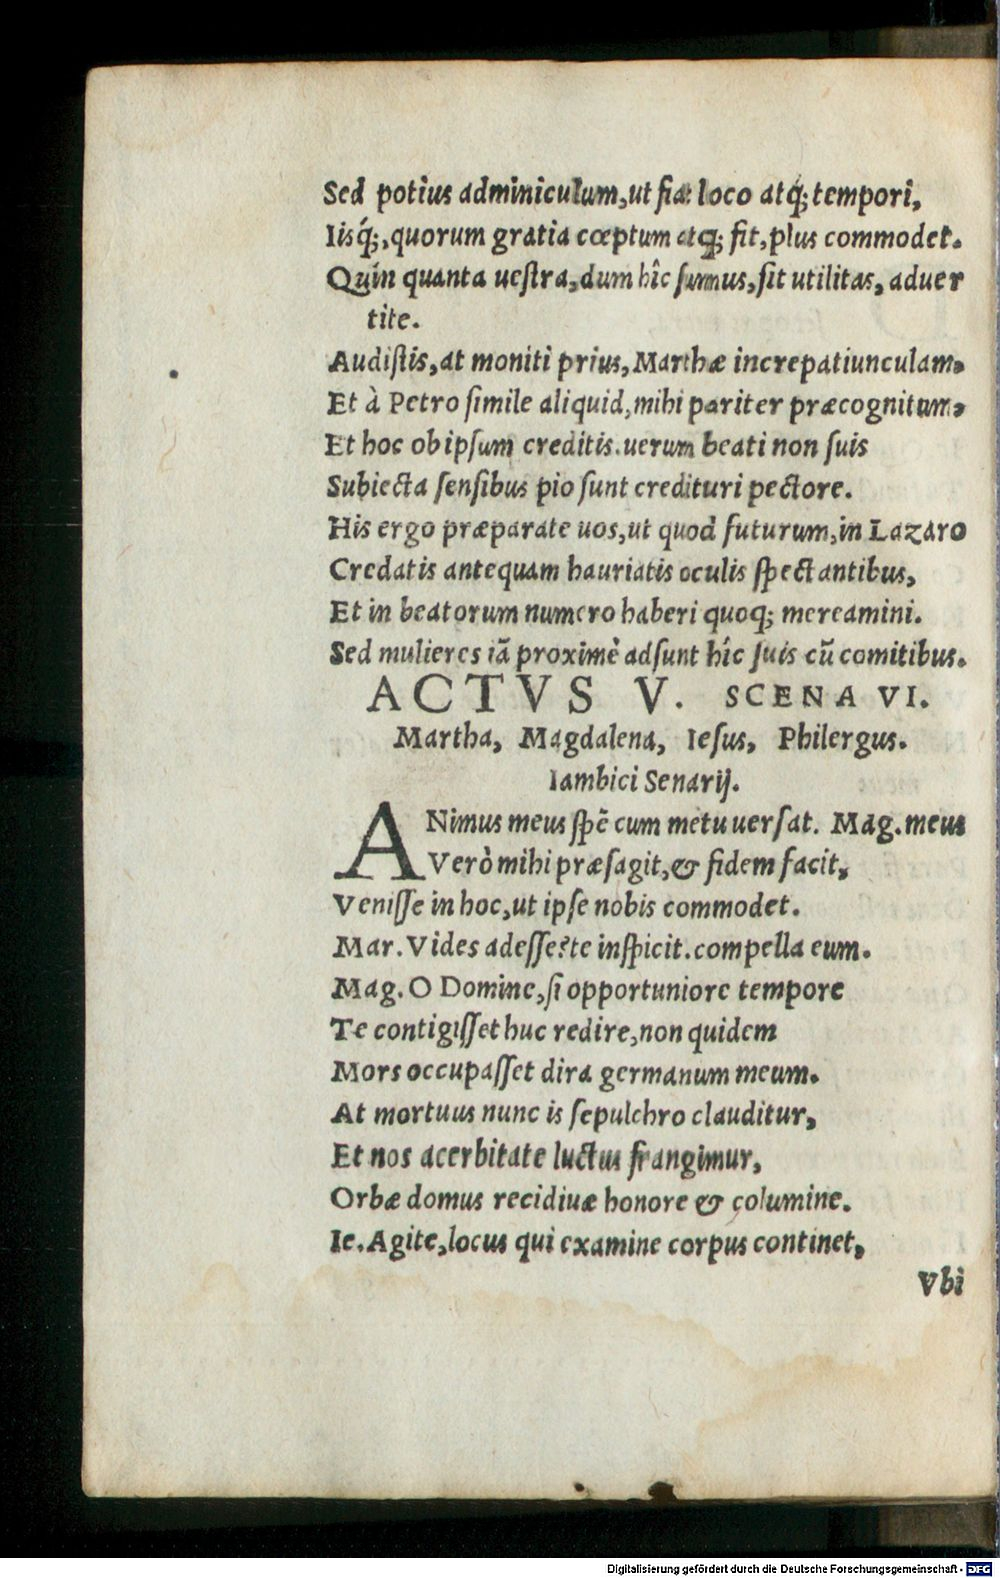 Sed potius adminiculum, ut fiat loco atq; tempori,
Iisq́;, quorum gratia cœptum atq; fit, plus commodet.
Quin quanta uestra, dum hîc sumus, sit utilitas, aduer
tite.
Audistis, at moniti prius, Marthæ increpatiunculam,
Et à Petro simile aliquid, mihi pariter præcognitum,
Et hoc ob ipsum creditis. uerum beati non suis
Subiecta sensibus pio sunt credituri pectore.
His ergo præparate uos, ut quod futurum, in Lazaro
Credatis antequam hauriatis oculis spectantibus,
Et in beatorum numero haberi quoq; mereamini.
Sed mulieres iã proximè adsunt hîc suis cũ comitibus.
ACTVS V. SCENA VI.
Martha, Magdalena, Iesus, Philergus.
Iambici Senarij.
ANimus meus spẽ cum metu uersat. Mag. meus
Verò mihi præsagit, & fidem facit,
Venisse in hoc, ut ipse nobis commodet.
Mar. Vides adesse? te inspicit. compella eum.
Mag. O Domine, si opportuniore tempore
Te contigisset huc redire, non quidem
Mors occupasset dira germanum meum.
At mortuus nunc is sepulchro clauditur,
Et nos acerbitate luctus frangimur,
Orbæ domus recidiuæ honore & columine.
Ie. Agite, locus qui examine corpus continet,
Vbi
Digitalisierung gefördert durch die Deutsche Forschungsgemeinschaft - DFG